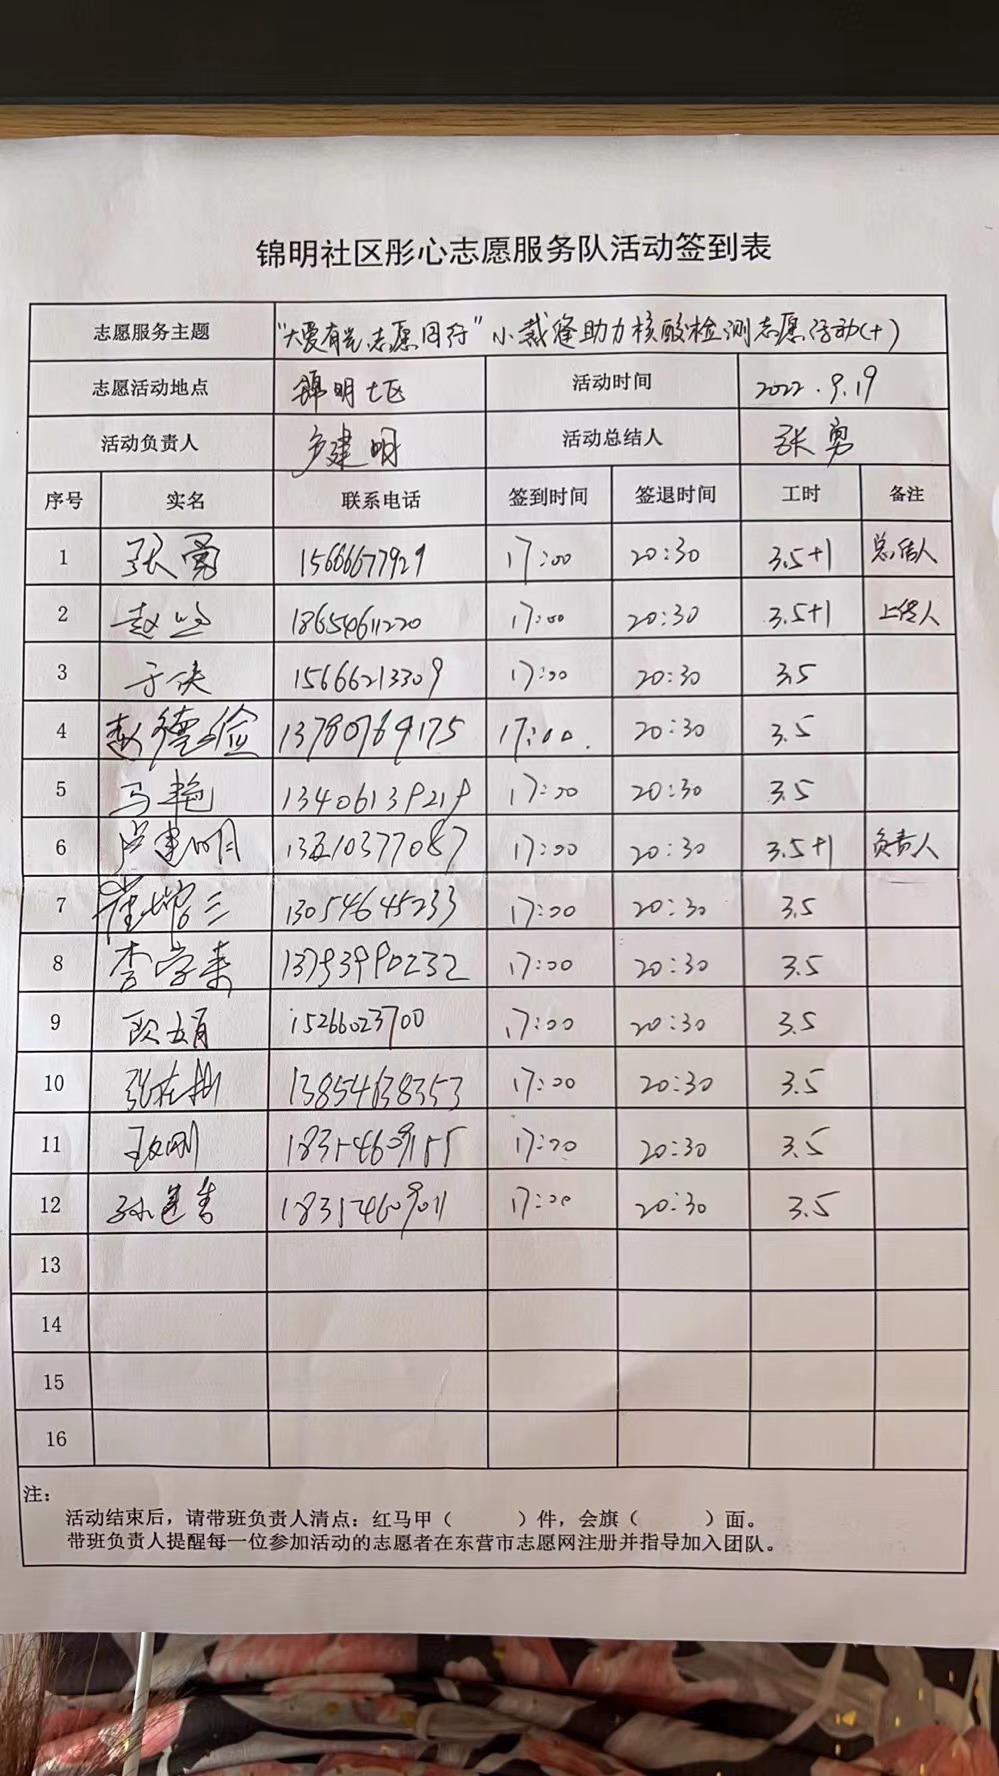 锦明社区彤心志愿服务队活动签到表
志愿服务主题 "大爱有光 志愿同行"小裁缝助力核酸检测志愿活动(十)
志愿活动地点 锦明社区 活动时间 2022.9.19
活动负责人 卢建明 活动总结人 张勇
序号 实名 联系电话 签到时间 签退时间 工时 备注
1 张勇 15666677929 17:00 20:30 3.5+1 总结人
2 赵 18654611220 17:00 20:30 3.5+1 上传人
3 于侠 15666213309 17:00 20:30 3.5
4 赵德俭 13780769175 17:00 20:30 3.5
5 马艳 13406139219 17:00 20:30 3.5
6 卢建明 17:00 20:30 3.5+1 负责人
7 崔 三 13054645233 17:00 20:30 3.5
8 李学来 13793990232 17:00 20:30 3.5
9 15266023700 17:00 20:30 3.5
10 张在 13854638353 17:00 20:30 3.5
11 刚 18354609155 17:00 20:30 3.5
12 孙 18354609011 17:00 20:30 3.5
13
14
15
16
注：
活动结束后，请带班负责人清点：红马甲（ ）件，会旗（ ）面。
带班负责人提醒每一位参加活动的志愿者在东营市志愿网注册并指导加入团队。